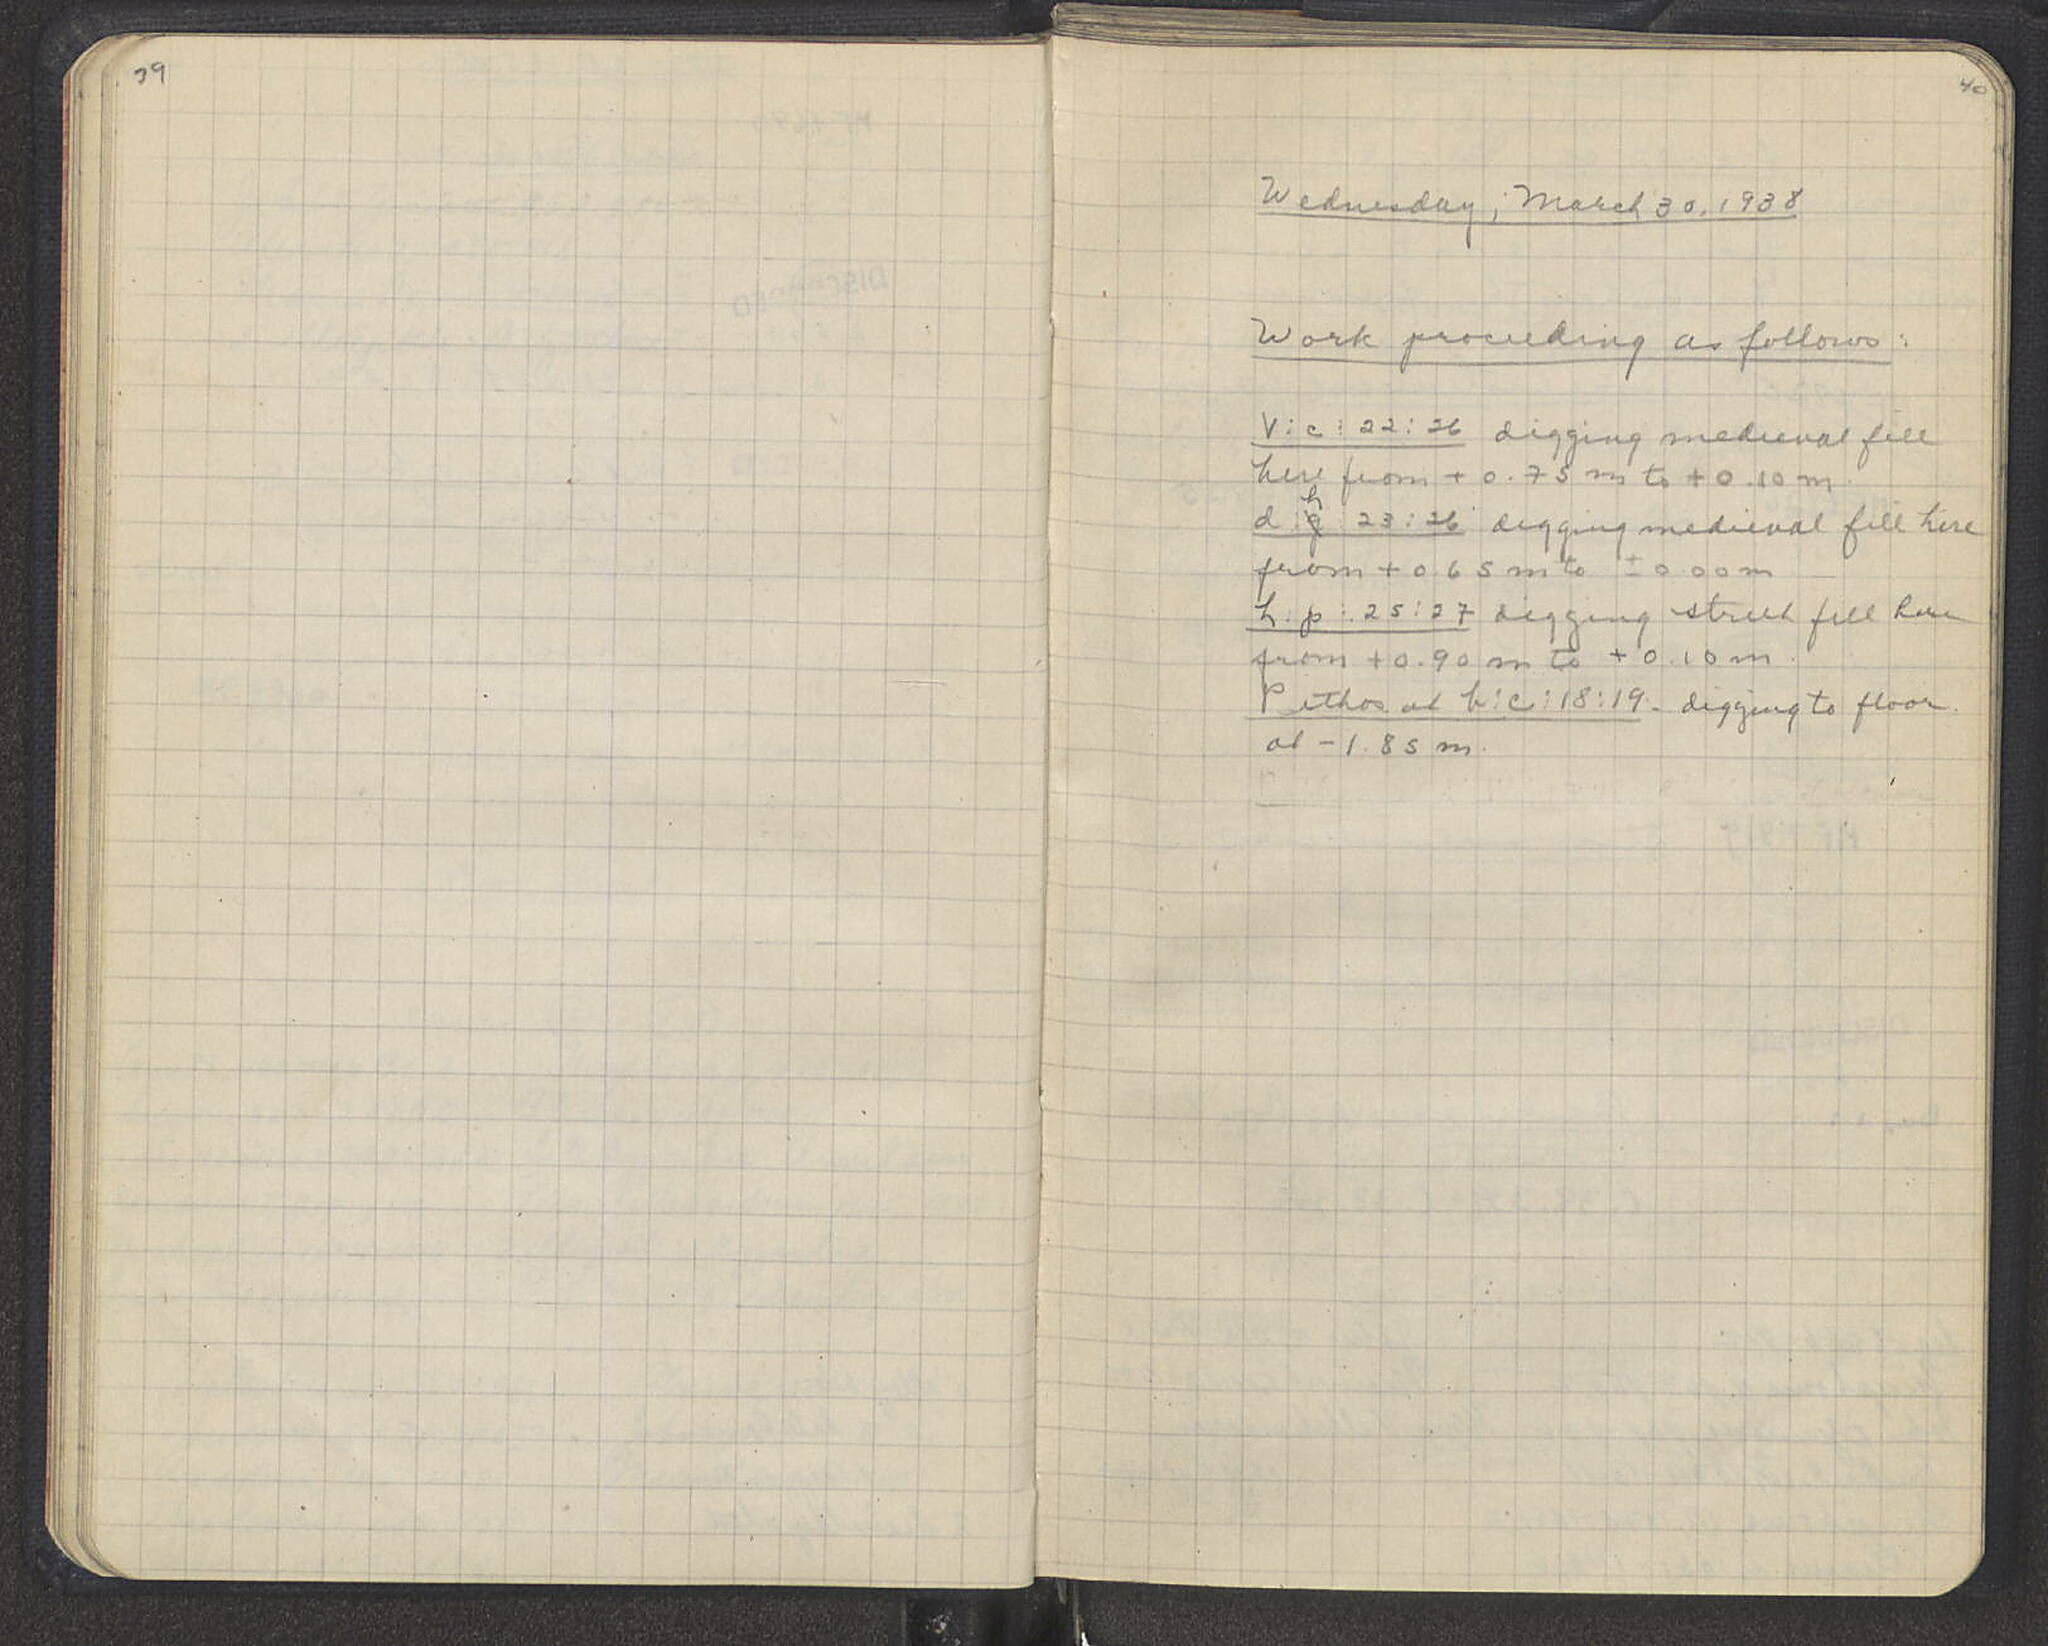 39
40
Wednesday, March 30, 1938
Work proceeding as follows:
V:c:22:26 digging medieval fill
here from +0.75 m to +0.10 m.
d:h:23:26 digging medieval fill here
from +0.65 m to ±0.00 m
h:p:25:27 digging street fill here
from +0.90 m to +0.10 m.
Pithos at b:c:18:19 - digging to floor
at -1.85 m.